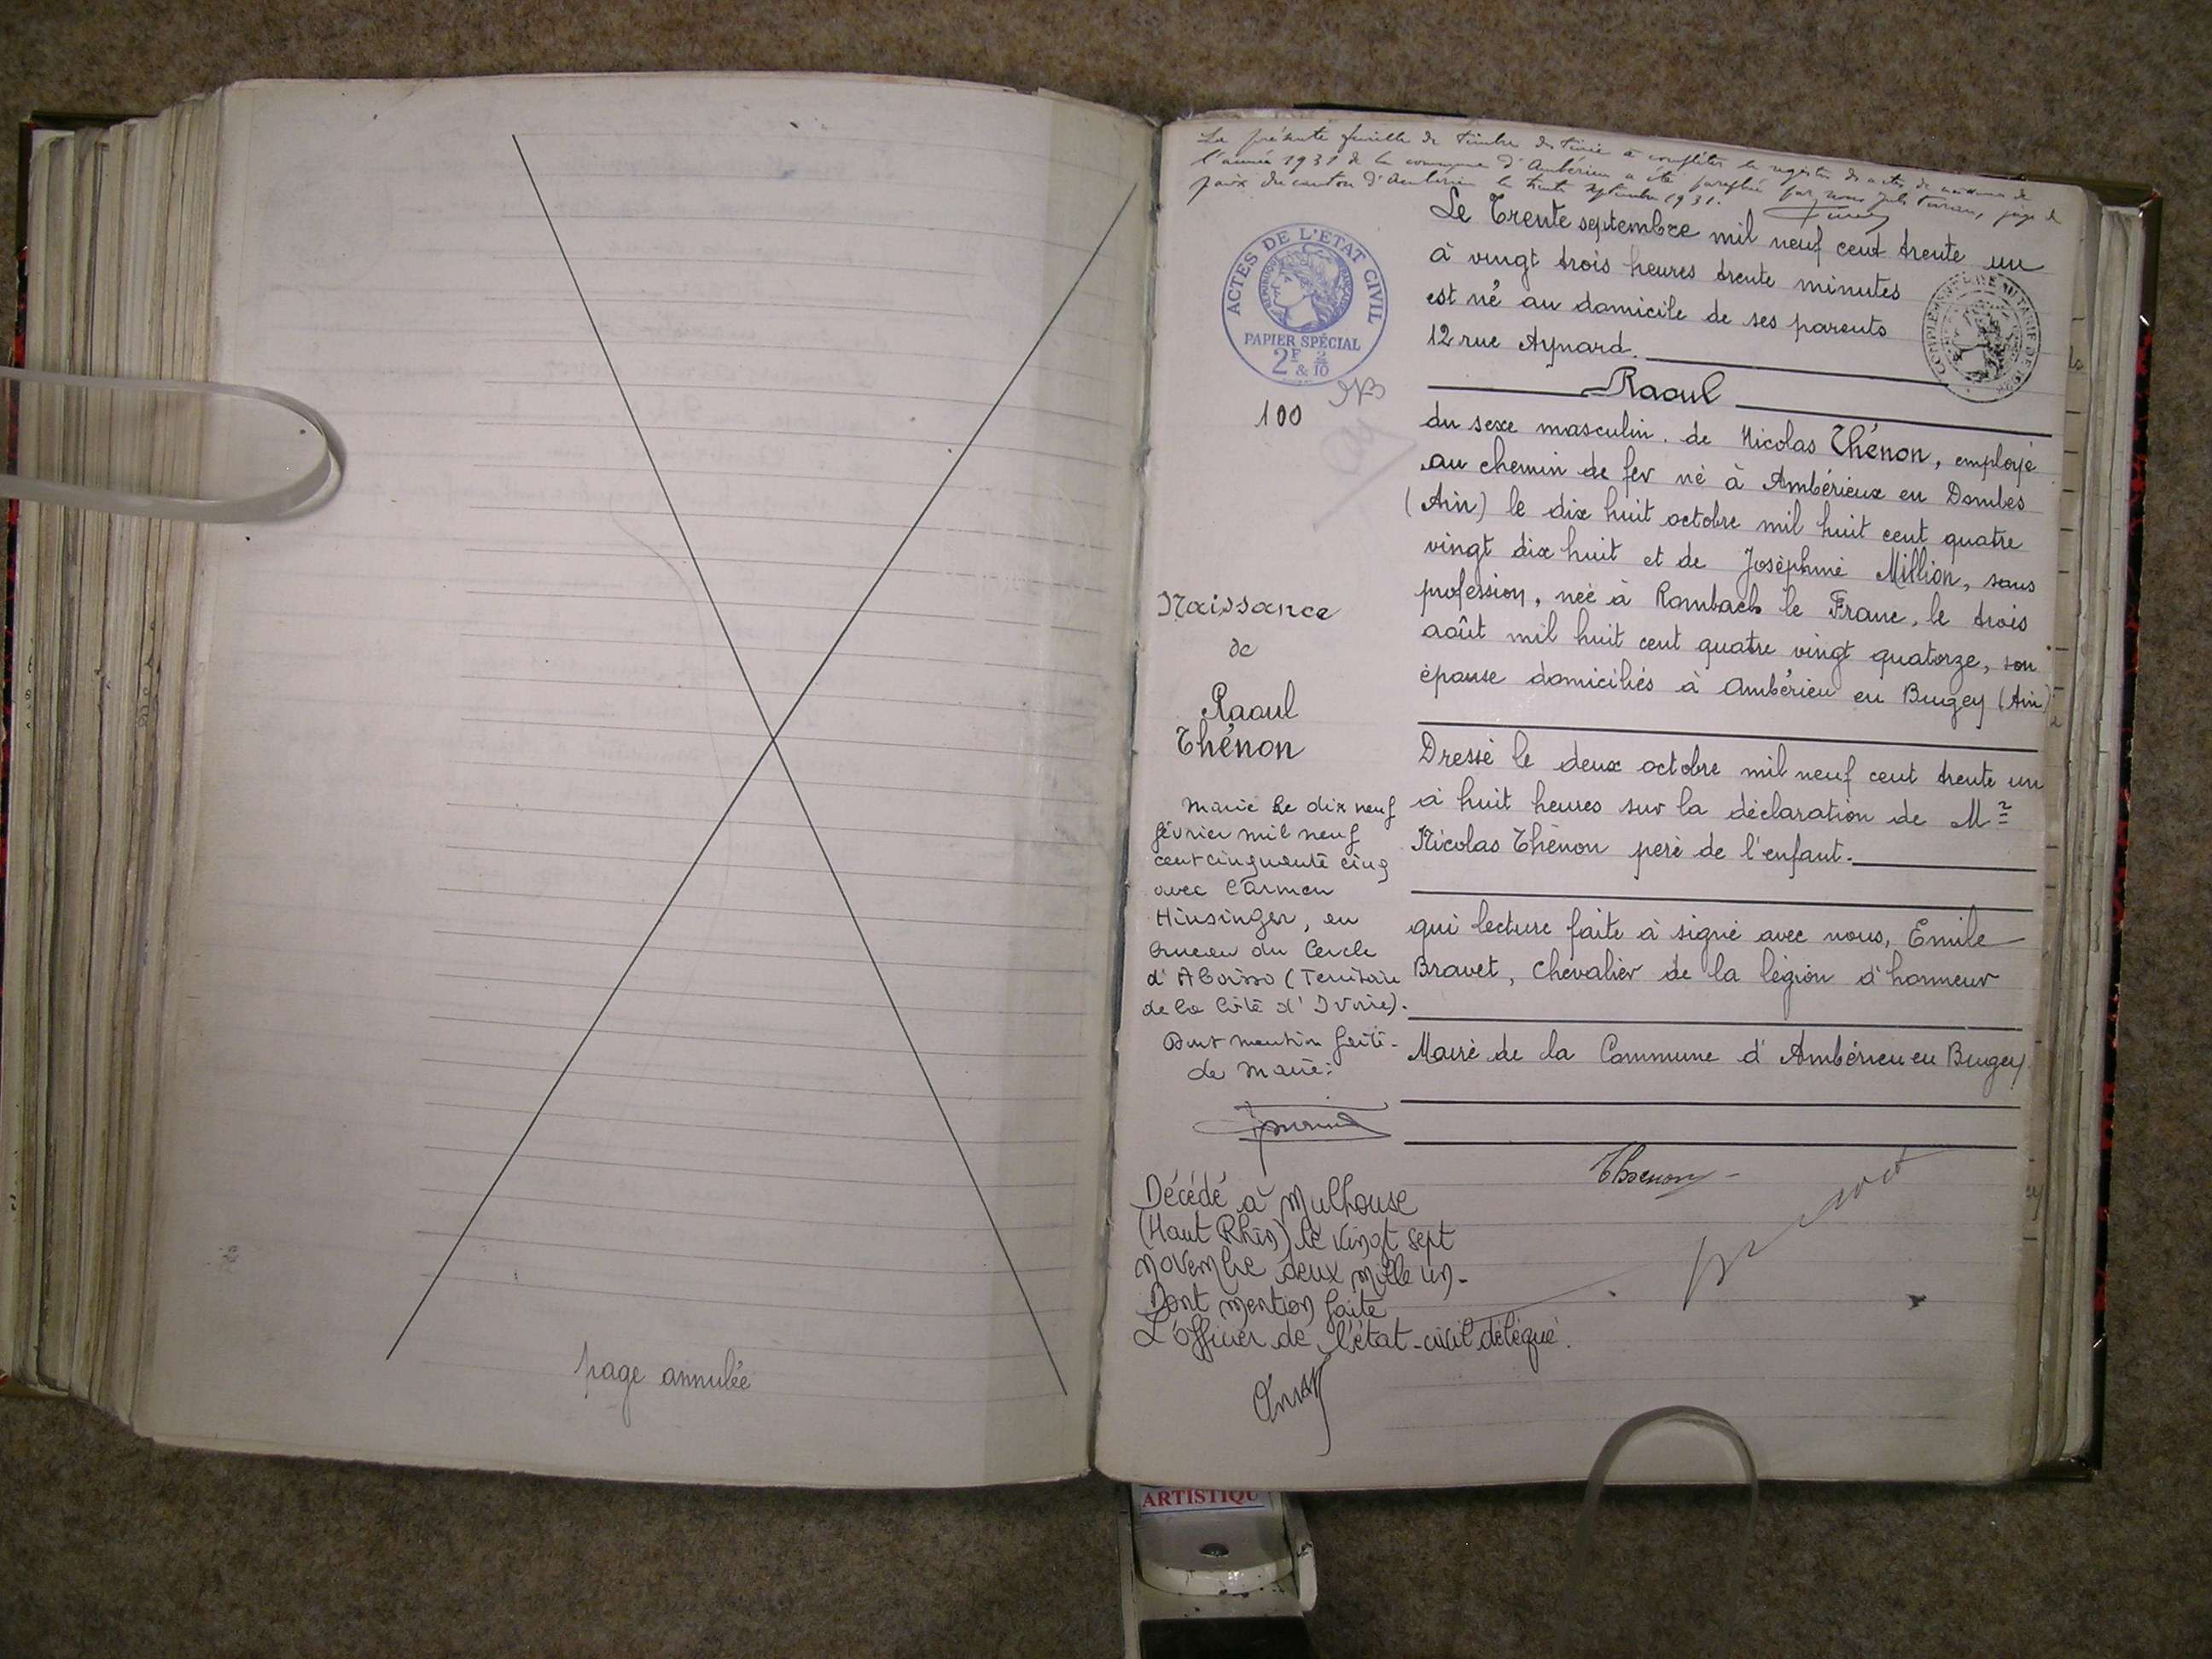 page annulée
La présente feuille de timbre destinée à compléter le registre des actes de naissance de
l'année 1931 de la commune d'Ambérieu a été paraphée par nous Jules, juge de
paix du canton d'Ambérieu le trente septembre 1931.
ACTES DE L'ETAT CIVIL
REPUBLIQUE FRANÇAISE
PAPIER SPÉCIAL
2F & 2/10
100
Naissance
de
Raoul
Thénon
Marié le dix neuf
février mil neuf
cent cinquante cinq
avec Carmen
Hinsinger, en
bureau du Cercle
d'Aboisso (Territoire
de la Côte d'Ivoire).
Dont mention faite.
Le Maire:
Décédé à Mulhouse
(Haut Rhin) le vingt sept
novembre deux mille un.
Dont mention faite
L'officier de l'état-civil délégué.
Le Trente septembre mil neuf cent trente un
à vingt trois heures trente minutes
est né au domicile de ses parents
12 rue Aynard.
Raoul
du sexe masculin. de Nicolas Thénon, employé
au chemin de fer né à Ambérieux en Dombes
(Ain) le dix huit octobre mil huit cent quatre
vingt dix huit et de Joséphine Million, sans
profession, née à Rombach le Franc, le trois
août mil huit cent quatre vingt quatorze, son
épouse domiciliés à Ambérieu en Bugey (Ain)
Dressé le deux octobre mil neuf cent trente un
à huit heures sur la déclaration de Mr
Nicolas Thénon père de l'enfant.
qui lecture faite à signé avec nous, Emile
Bravet, Chevalier de la légion d'honneur
Maire de la Commune d'Ambérieu en Bugey
Thenon
Bravet
ARTISTIQU